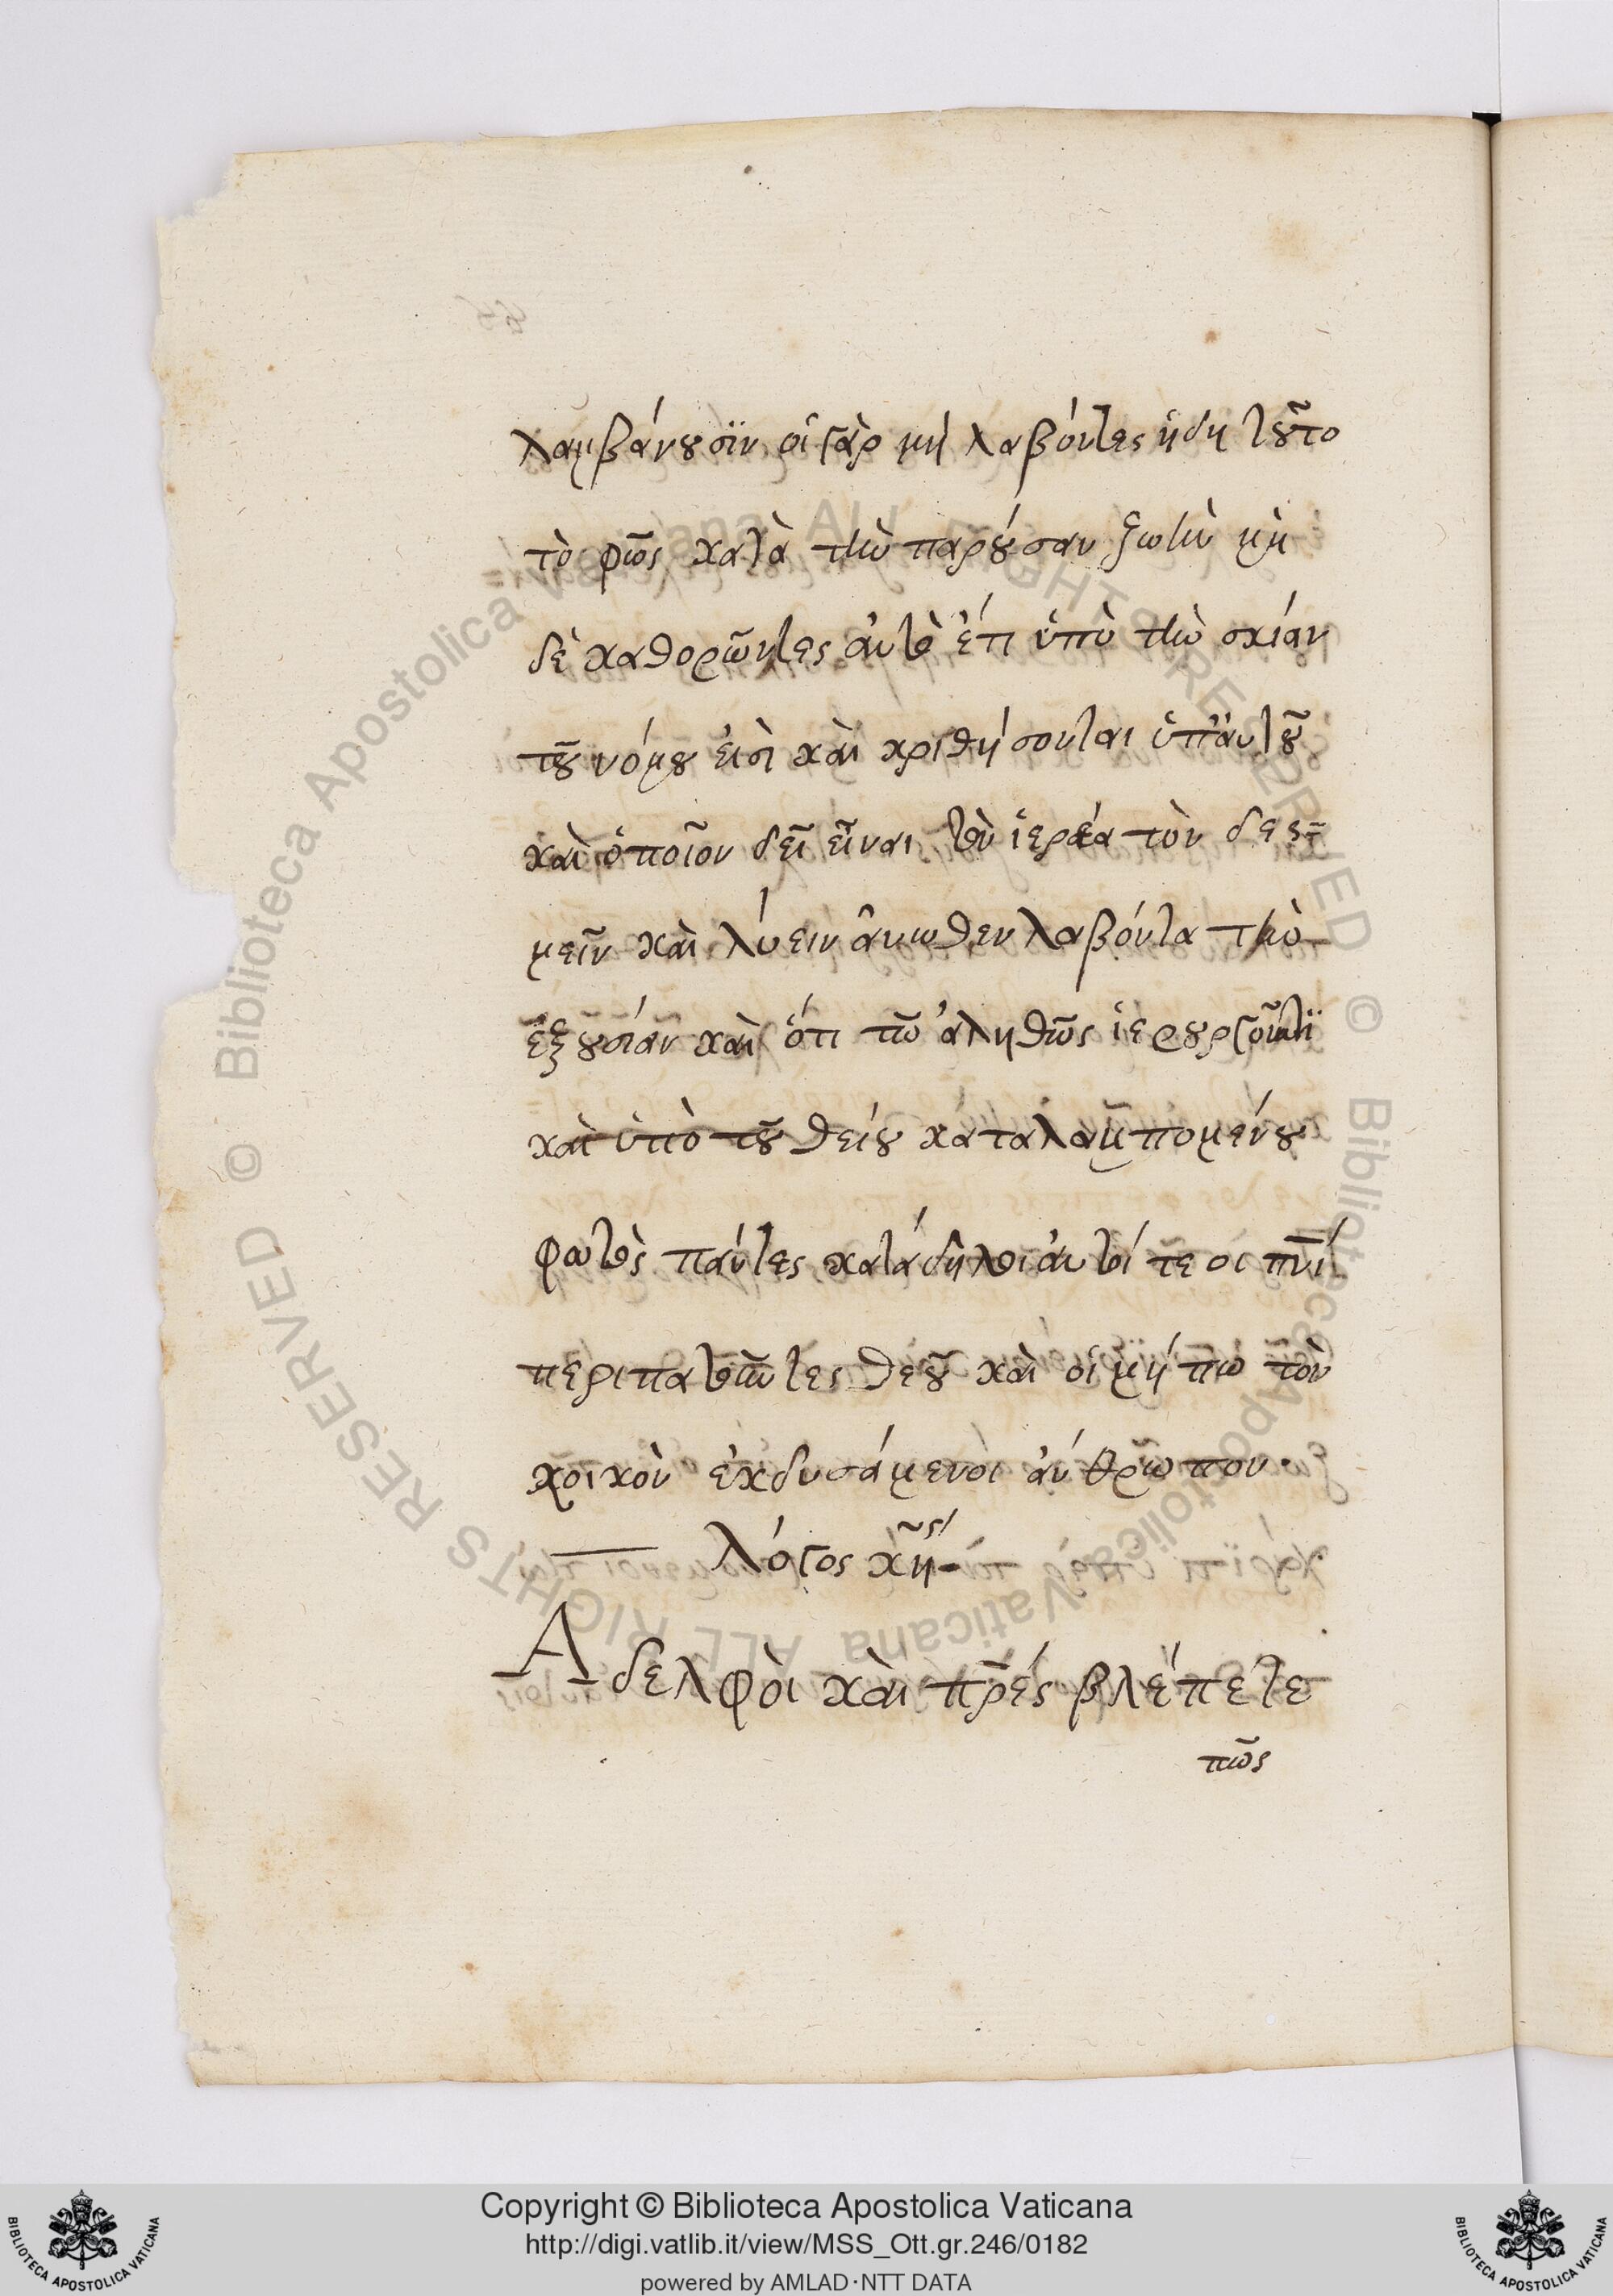 λαμβάνουσϊν οἱ γὰρ μὴ λαβόντες ἤδη τοῦτο
τὸ φῶς κατὰ τὴν παροῦσαν ζωὴν μὴ
δὲ καθορῶντες ἀυτὸ ἔτι ὑπὸ τὴν σκίαν
τοῦ νόμου ἐισὶ κὰι κριθήσονται ὑπ' ἀυτοῦ
κὰι ὁποῖον δεῖ εἶναι τὸν ἱερέα τὸν δεσ=
μεῖν κὰι λύειν ἄνωθεν λαβόντα τὴν
ἐξουσίαν κὰι ὅτι τῶ ἀληθῶς ἱερουργοῦντϊ
κὰι ὑπὸ τοῦ θείου καταλαμπομένου
φωτὸς πάντες κατάδηλοι ἀυτοί τε οι πνί
περιπατοῦντες θεοῦ κὰι οἱ μήπω τὸν
χοικὸν ἐκδυσάμενοι ἀνθρωπον.
λόγος κη
Ἀδελφὸι κὰι πρές βλέπετε
πῶς
Copyright © Biblioteca Apostolica Vaticana
http://digi.vatlib.it/view/MSS_Ott.gr.246/0182
powered by AMLAD·NTT DATA
BIBLIOTECA APOSTOLICA VATICANA
BIBLIOTECA APOSTOLICA VATICANA
© Biblioteca Apostolica Vaticana ALL RIGHTS RESERVED
© Biblioteca Apostolica Vaticana ALL RIGHTS RESERVED